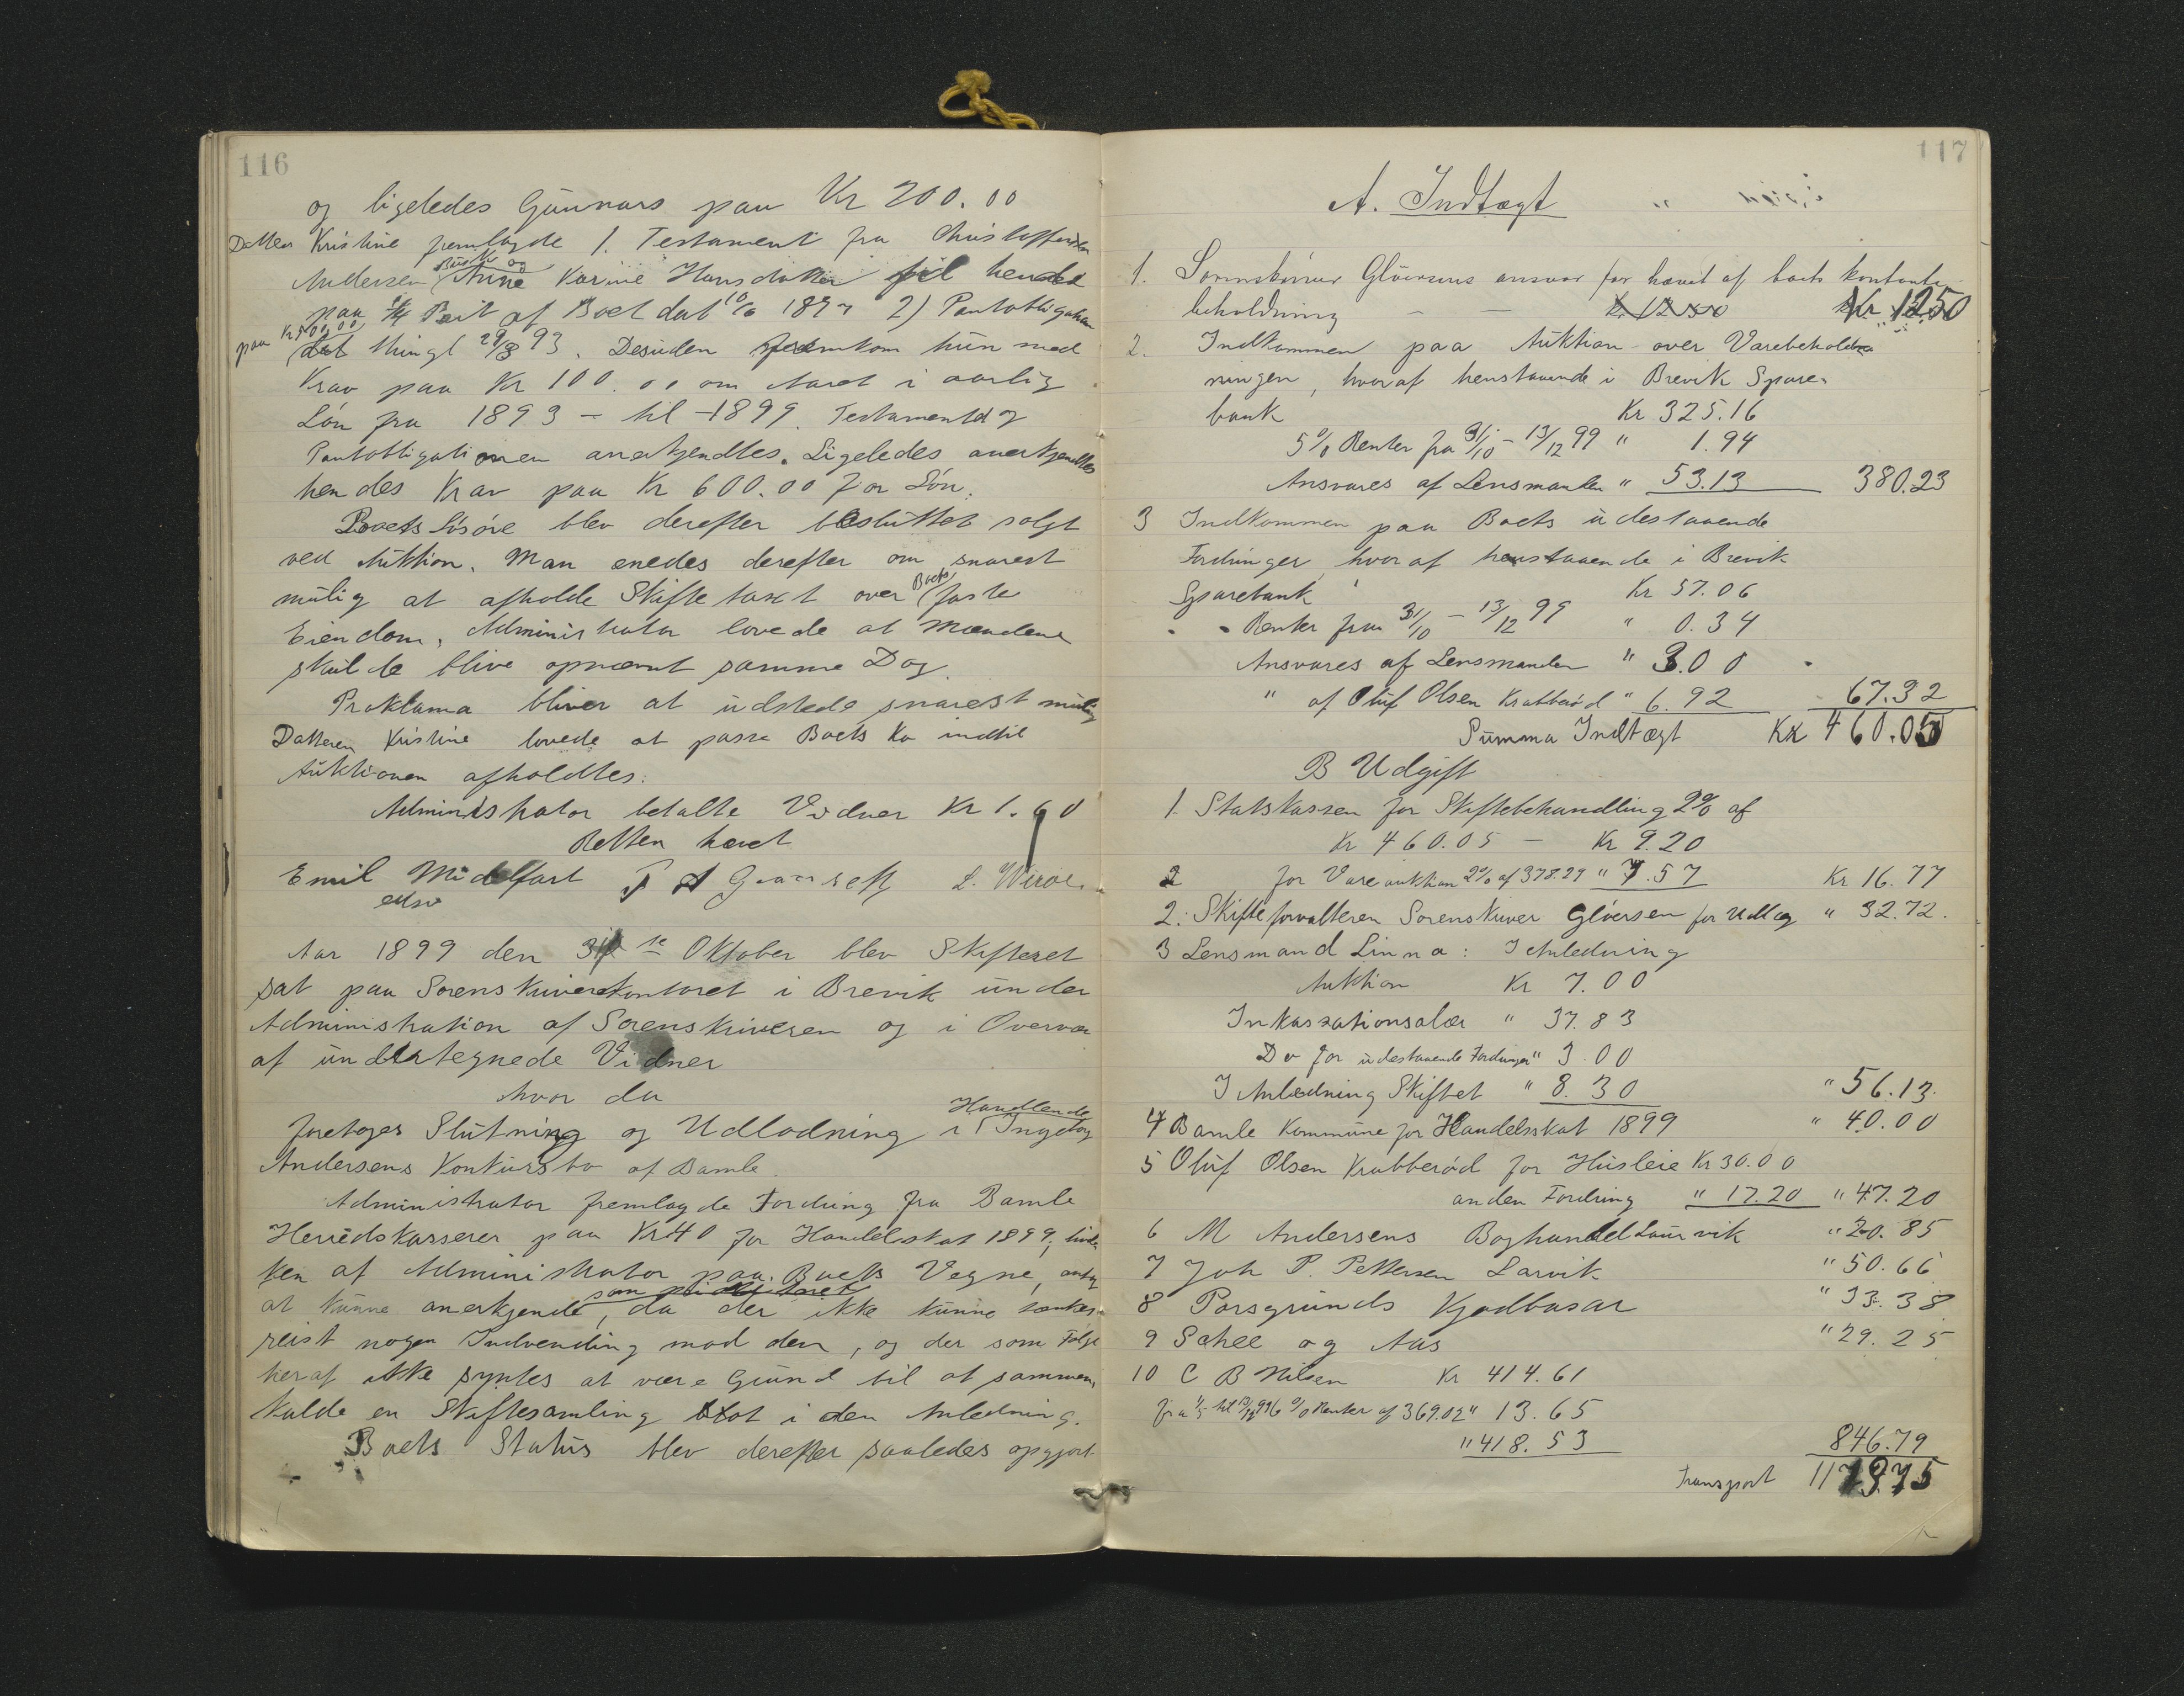 116
og ligeledes Gunnars paa Kr 200.00
Datteren Kristine fremlagde 1. Testament fra Christoffer
Andersen Anne Karine Hansdatter til hende
paa 1/4 Part af Boet dat 10/6 1897 2) Pantobligation
paa Kr 500.00
dat thingl 29/3 93. Desuden fremkom hun med
Krav paa Kr 100.00 om Aaret i aarlig
Løn fra 1893 - til - 1899. Testamentet og
Pantobligationen anerkjendtes. Ligeledes anerkjendtes
hendes Krav paa Kr 600.00 for Løn.
Boets Løsøre blev derefter besluttet solgt
ved Auktion. Man enedes derefter om snarest
mulig at afholde Skiftetaxt over Boets faste
Eiendom, Administrator lovede at Mændene
skulde blive opnævnt samme Dag.
Proklama bliver at udstede snarest mulig
Datteren Kristine lovede at passe Boets Ko indtil
Auktionen afholdtes.
Administrator betalte Vidner Kr 1.60
Retten hævet
Emil Midelfart
L. Wiroe
Aar 1899 den 31te Oktober blev Skifteret
sat paa Sorenskriverkontoret i Brevik under
Administration af Sorenskriveren og i Overvær
af undertegnede Vidner
hvor da
foretoges Slutning og Udlodning i Handlende
Andersens Konkursbo af Bamle.
Administrator fremlagde Fordring fra Bamle
Herredskasserer paa Kr 40 for Handelsskat 1899,
ken af Administrator paa Boets Vegne,
at kunne anerkjende, da der ikke kunne tænkes
reist nogen Indvending mod den, og der som Følge
heraf ikke syntes at være Grund til at sammen-
kalde en Skiftesamling blot i den Anledning.
Boets Status blev derefter saaledes opgjort
117
A. Indtægt
1. Sorenskriver Gløersens ansvar for hævet af boets kontante
beholdning - - Kr 12.50
2. Indkommen paa Auktion over Varebehold-
ningen, hvoraf henstaaende i Brevik Spare-
bank Kr 325.16
5% Renter fra 31/10 - 13/12 99 " 1.94
Ansvares af Lensmanden " 53.13 380.23
3 Indkommen paa Boets udestaaende
Fordringer hvoraf henstaaende i Brevik
Sparebank Kr 57.06
Renter fra 31/10 - 13/12 99 " 0.34
Ansvares af Lensmanden " 3.00
" af Oluf Olsen Krabberød " 6.92 67.32
Summa Indtægt Kr 460.05
B Udgift
1. Statskassen for Skiftebehandling 2% af
Kr 460.05 - Kr 9.20
2 for Vareauktion 2% af 378.29 " 7.57 Kr 16.77
2. Skifteforvalteren Sorenskriver Gløersen for Udlæg " 32.72.
3 Lensmand Linna: I Anledning
Auktion Kr 7.00
Inkassationsalær " 37.83
Do for udestaaende Fordringer " 3.00
I Anledning Skiftet " 8.30 " 56.13.
4 Bamle Kommune for Handelsskat 1899 " 40.00
5 Oluf Olsen Krabberød for Husleie Kr 30.00
anden Fordring " 17.20 " 47.20
6 M Andersens Boghandel Laurvik " 20.85
7 Joh P. Pettersen Larvik " 50.66
8 Porsgrunds Kjødbasar " 33.38
9 Schee og Aas " 29.25
10 C B Nilsen Kr 414.61
Renter af 369.02 " 13.65
" 418.53 846.79
Transport